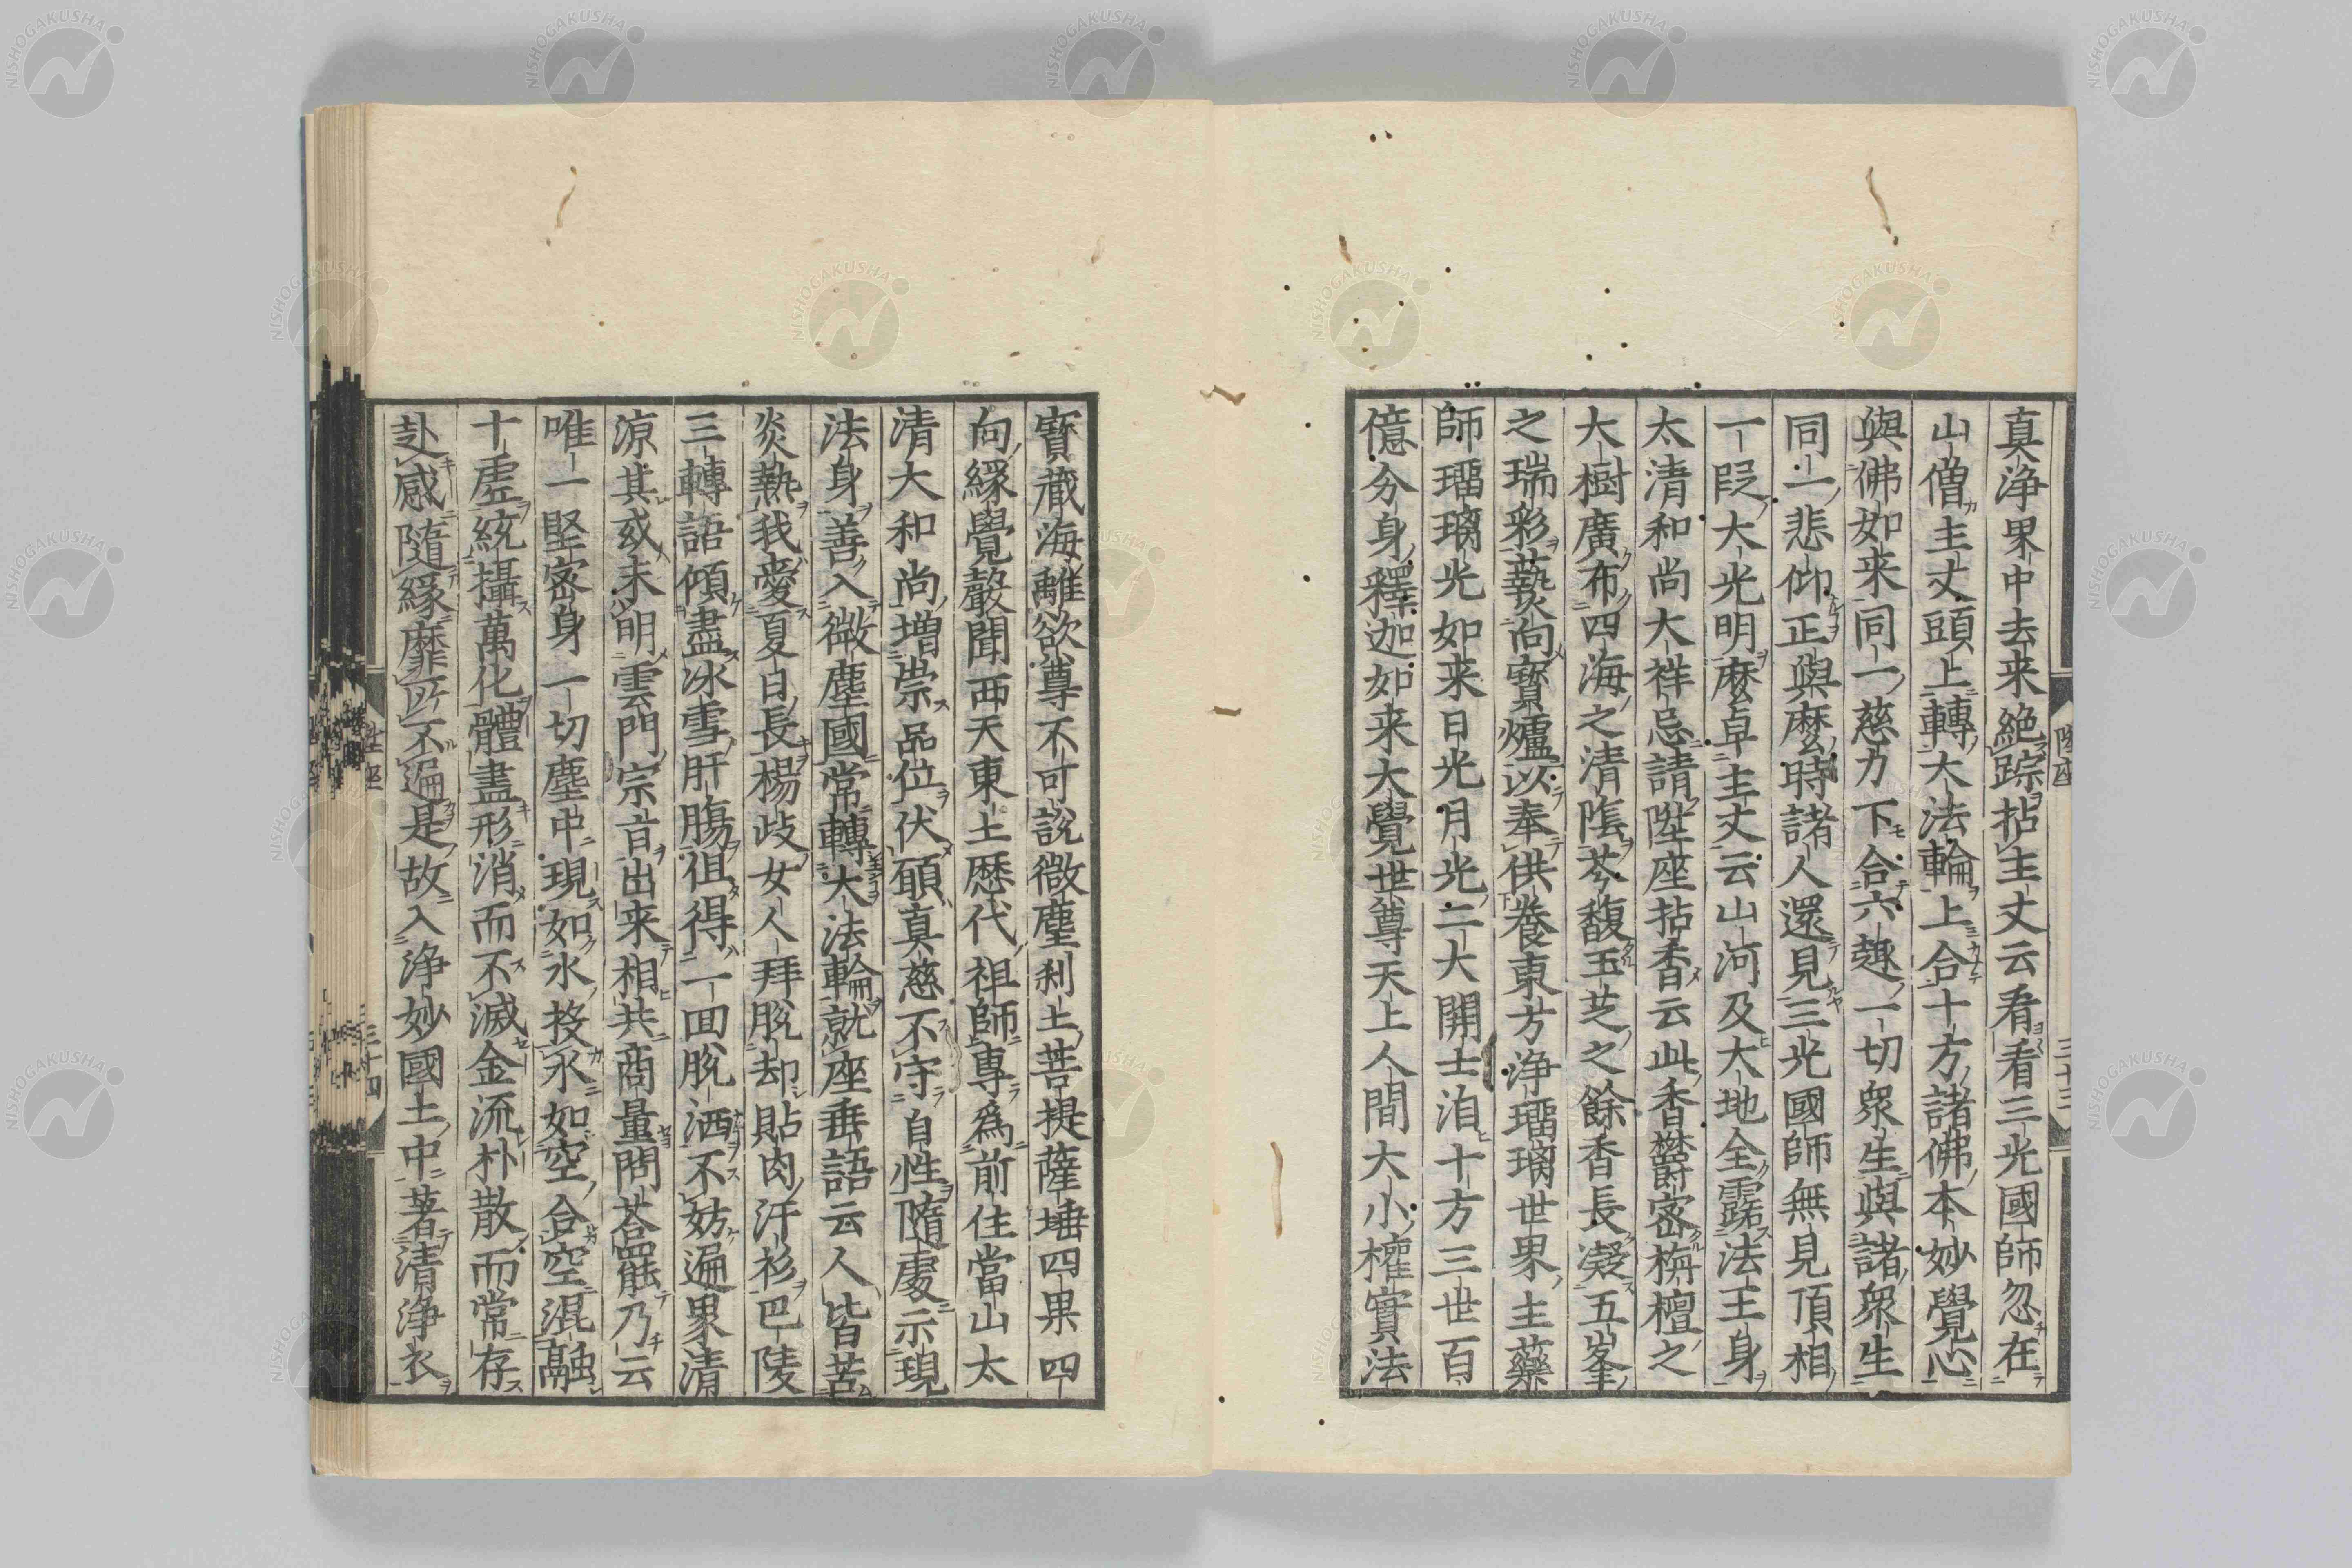 真浄界中去来絶踪拈主丈云看看三光國師忽在
山僧主丈頭上轉大法輪上合十方諸佛本妙覺心
與佛如来同一慈力下合六趣一切衆生與諸衆生
同一悲仰正與麼時諸人還見三光國師無見頂相
一段大光明麼卓主丈云山河及大地全露法王身
太清和尚大祥忌請陞座拈香云此香欝密栴檀之
大樹廣布四海之清陰芬馥玉芝之餘香長凝五峯
之瑞彩爇向寳爐以奉供養東方浄瑠璃世界主藥
師瑠璃光如来日光月光二大開士洎十方三世百
億分身釋迦如来大覺世尊天上人間大小權實法
陞座
三十三
寳藏海離欲尊不可說微塵刹土菩提薩埵四果四
向緣覺聲聞西天東土歷代祖師專爲前住當山太
清大和尚増崇品位伏願真慈不守自性隨處示現
法身善入微塵國常轉大法輪就座垂語云人皆苦
炎熱我愛夏日長楊岐女人拜脫却貼肉汗衫巴陵
三轉語傾盡冰雪肝腸徂得一回脫洒不妨遍界清
凉其或未明雲門宗旨出来相共商量問荅罷乃云
唯一堅密身一切塵中現如水投水如空合空混融
十虚統攝萬化體盡形消而不滅金流朴散而常存
赴感隨緣靡所不遍是故入浄妙國土中著清浄衣
三十四
NISHOGAKUSHA